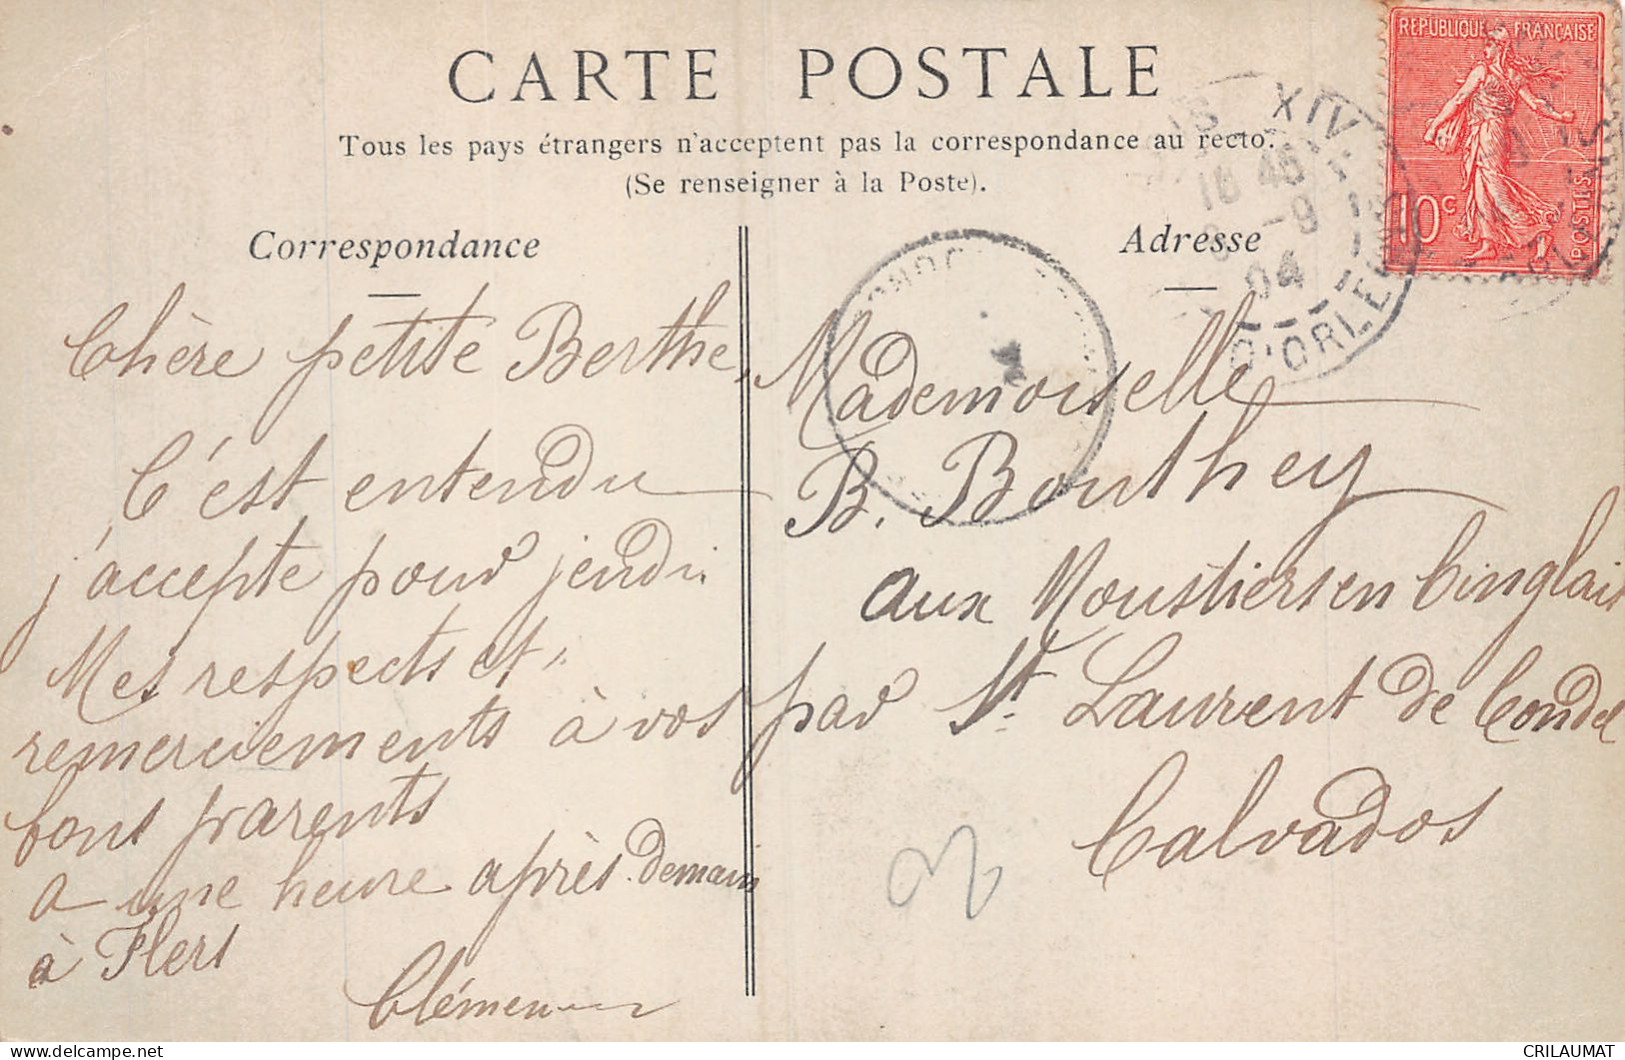 CARTE POSTALE
Tous les pays étrangers n'acceptent pas la correspondance au recto.
(Se renseigner à la Poste).
Correspondance
Chère petite Berthe,
C'est entendu
j'accepte pour jeudi
Mes respects et
remerciements à vos
bons parents
a une heure après demain
à Flers
Adresse
Mademoiselle
B. Bouthey
aux Moustiers en Cinglais
par St. Laurent de Condel
Calvados
REPUBLIQUE FRANÇAISE
10c
POSTES
XIV
D'ORLEANS
04
CRILAUMAT